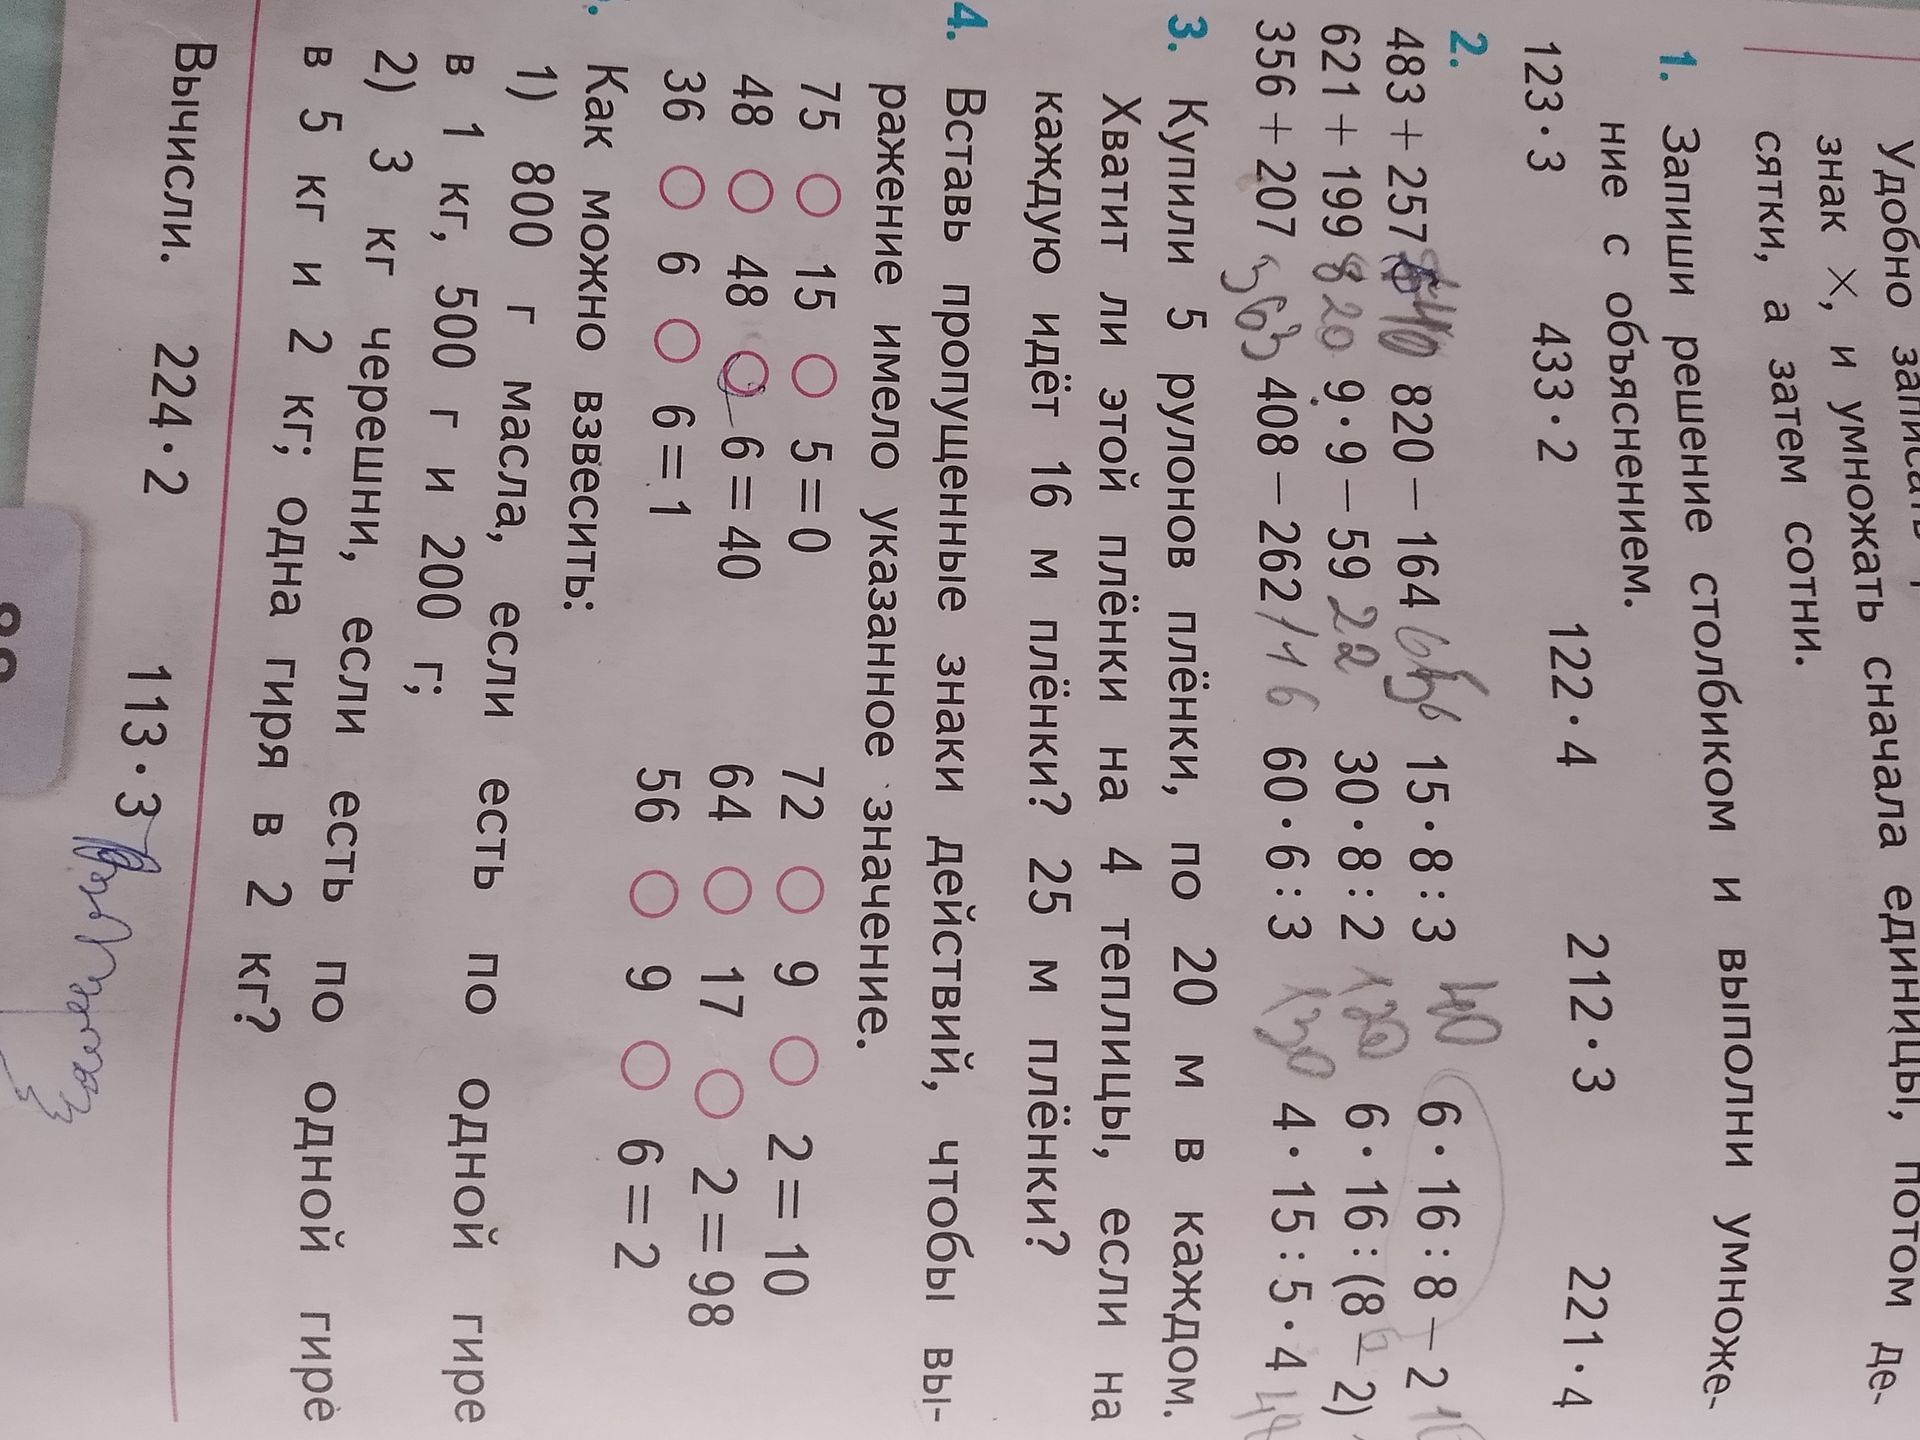 Удобно записать
знак ×, и умножать сначала единицы, потом де-
сятки, а затем сотни.
1. Запиши решение столбиком и выполни умноже-
ние с объяснением.
123 · 3 433 · 2 122 · 4 212 · 3 221 · 4
2.
483 + 257 820 − 164 656 15 · 8 : 3 40 6 · 16 : 8 − 2 10
621 + 199 820 9 · 9 − 59 22 30 · 8 : 2 120 6 · 16 : (8 − 2)
356 + 207 563 408 − 262 60 · 6 : 3 130 4 · 15 : 5 · 4
3. Купили 5 рулонов плёнки, по 20 м в каждом.
Хватит ли этой плёнки на 4 теплицы, если на
каждую идёт 16 м плёнки? 25 м плёнки?
4. Вставь пропущенные знаки действий, чтобы вы-
ражение имело указанное значение.
75 ○ 15 ○ 5 = 0 72 ○ 9 ○ 2 = 10
48 ○ 48 ○ 6 = 40 64 ○ 17 ○ 2 = 98
36 ○ 6 ○ 6 = 1 56 ○ 9 ○ 6 = 2
Как можно взвесить:
1) 800 г масла, если есть по одной гире
в 1 кг, 500 г и 200 г;
2) 3 кг черешни, если есть по одной гире
в 5 кг и 2 кг; одна гиря в 2 кг?
Вычисли. 224 · 2 113 · 3